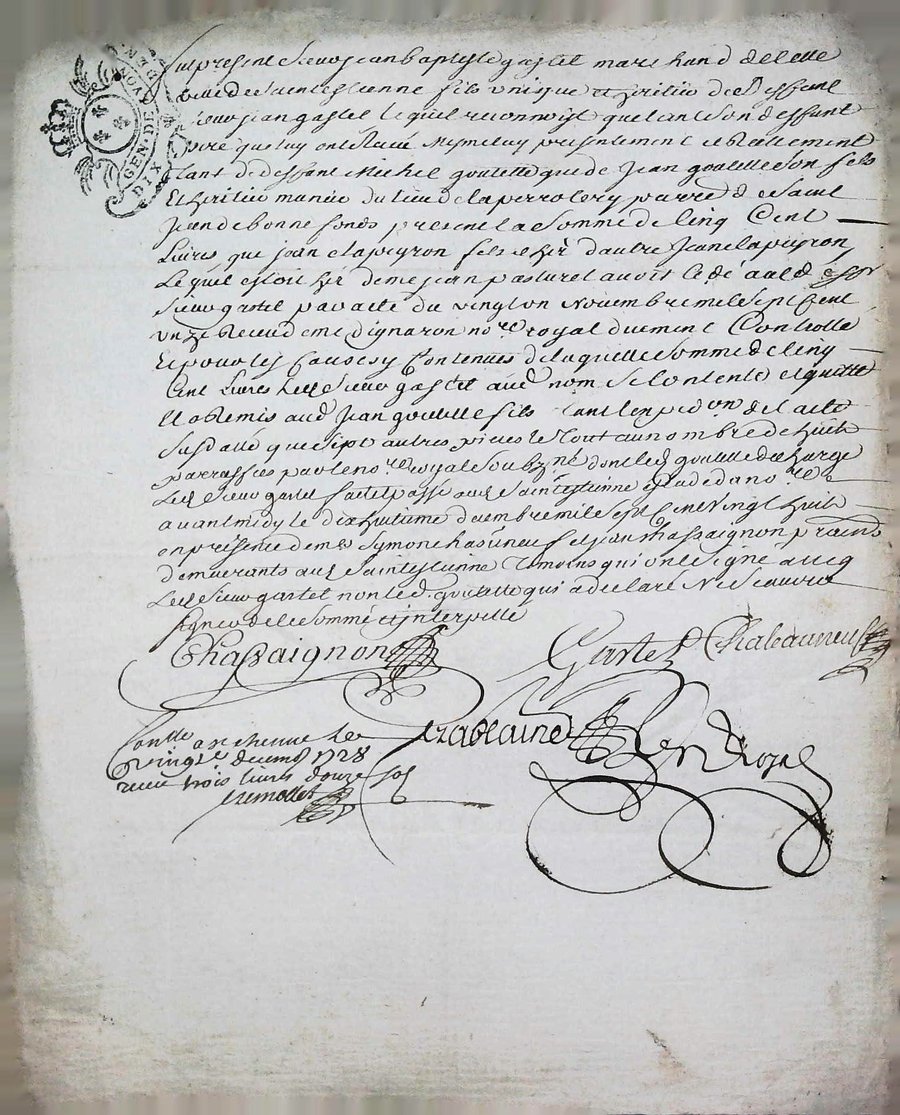 GEN. DE
DIX
fut present Sieur jean baptiste gastel marchand de cette
ville de Saint estienne fils unique et heritier de deffunt
Sieur jean gastel lequel reconnoist que tant son deffunt
pere que luy ont Receu mesme luy presentement et Reallement
tant de deffunt Michel goulette que de Jean goulette son fils
Et heritier manœu du lieu de la perrotery parre de Saint
Jean de bonnefonds present la Somme de Cinq Cent
Livres, que jean clapeyron fils et her dautre Jean clapeyron
Lequel estoit her de me jean pasturel avoit cedé aud deffunt
Sieur gastel par acte du vingt un Novembre mil Sept Cent
unze Receud me dignaron nore royal duement Controllé
Et pour les Causes y Contenues de laquelle Somme de Cinq
Cent Livres led Sieur gastel aud nom Se Contente et quitte
Et a Remis aud Jean goulette fils tant lexpedon de lacte
Susdatté que Sept autres pieces le tout au nombre de huit
parraffées par le nore royal Soubzné dont led goulette decharge
Led Sieur gastel fait et passé aud Saint estienne estude de nore
avant midy le dixhuitième decembre mil Sept Cent Vingt huit
en présence de mrs Symon chasteneuf et jean Chassaignon pratns
demeurants aud Saint estienne temoins qui ont Signé avecq
Led Sieur gastel non led. goulette qui a declaré Ne Sçavoir
Signer de ce Sommé et interpellé
Chassaignon
Gastel
Royal
Contlle a st etienne le
vingt decemb 1728
receu trois livres douze sols